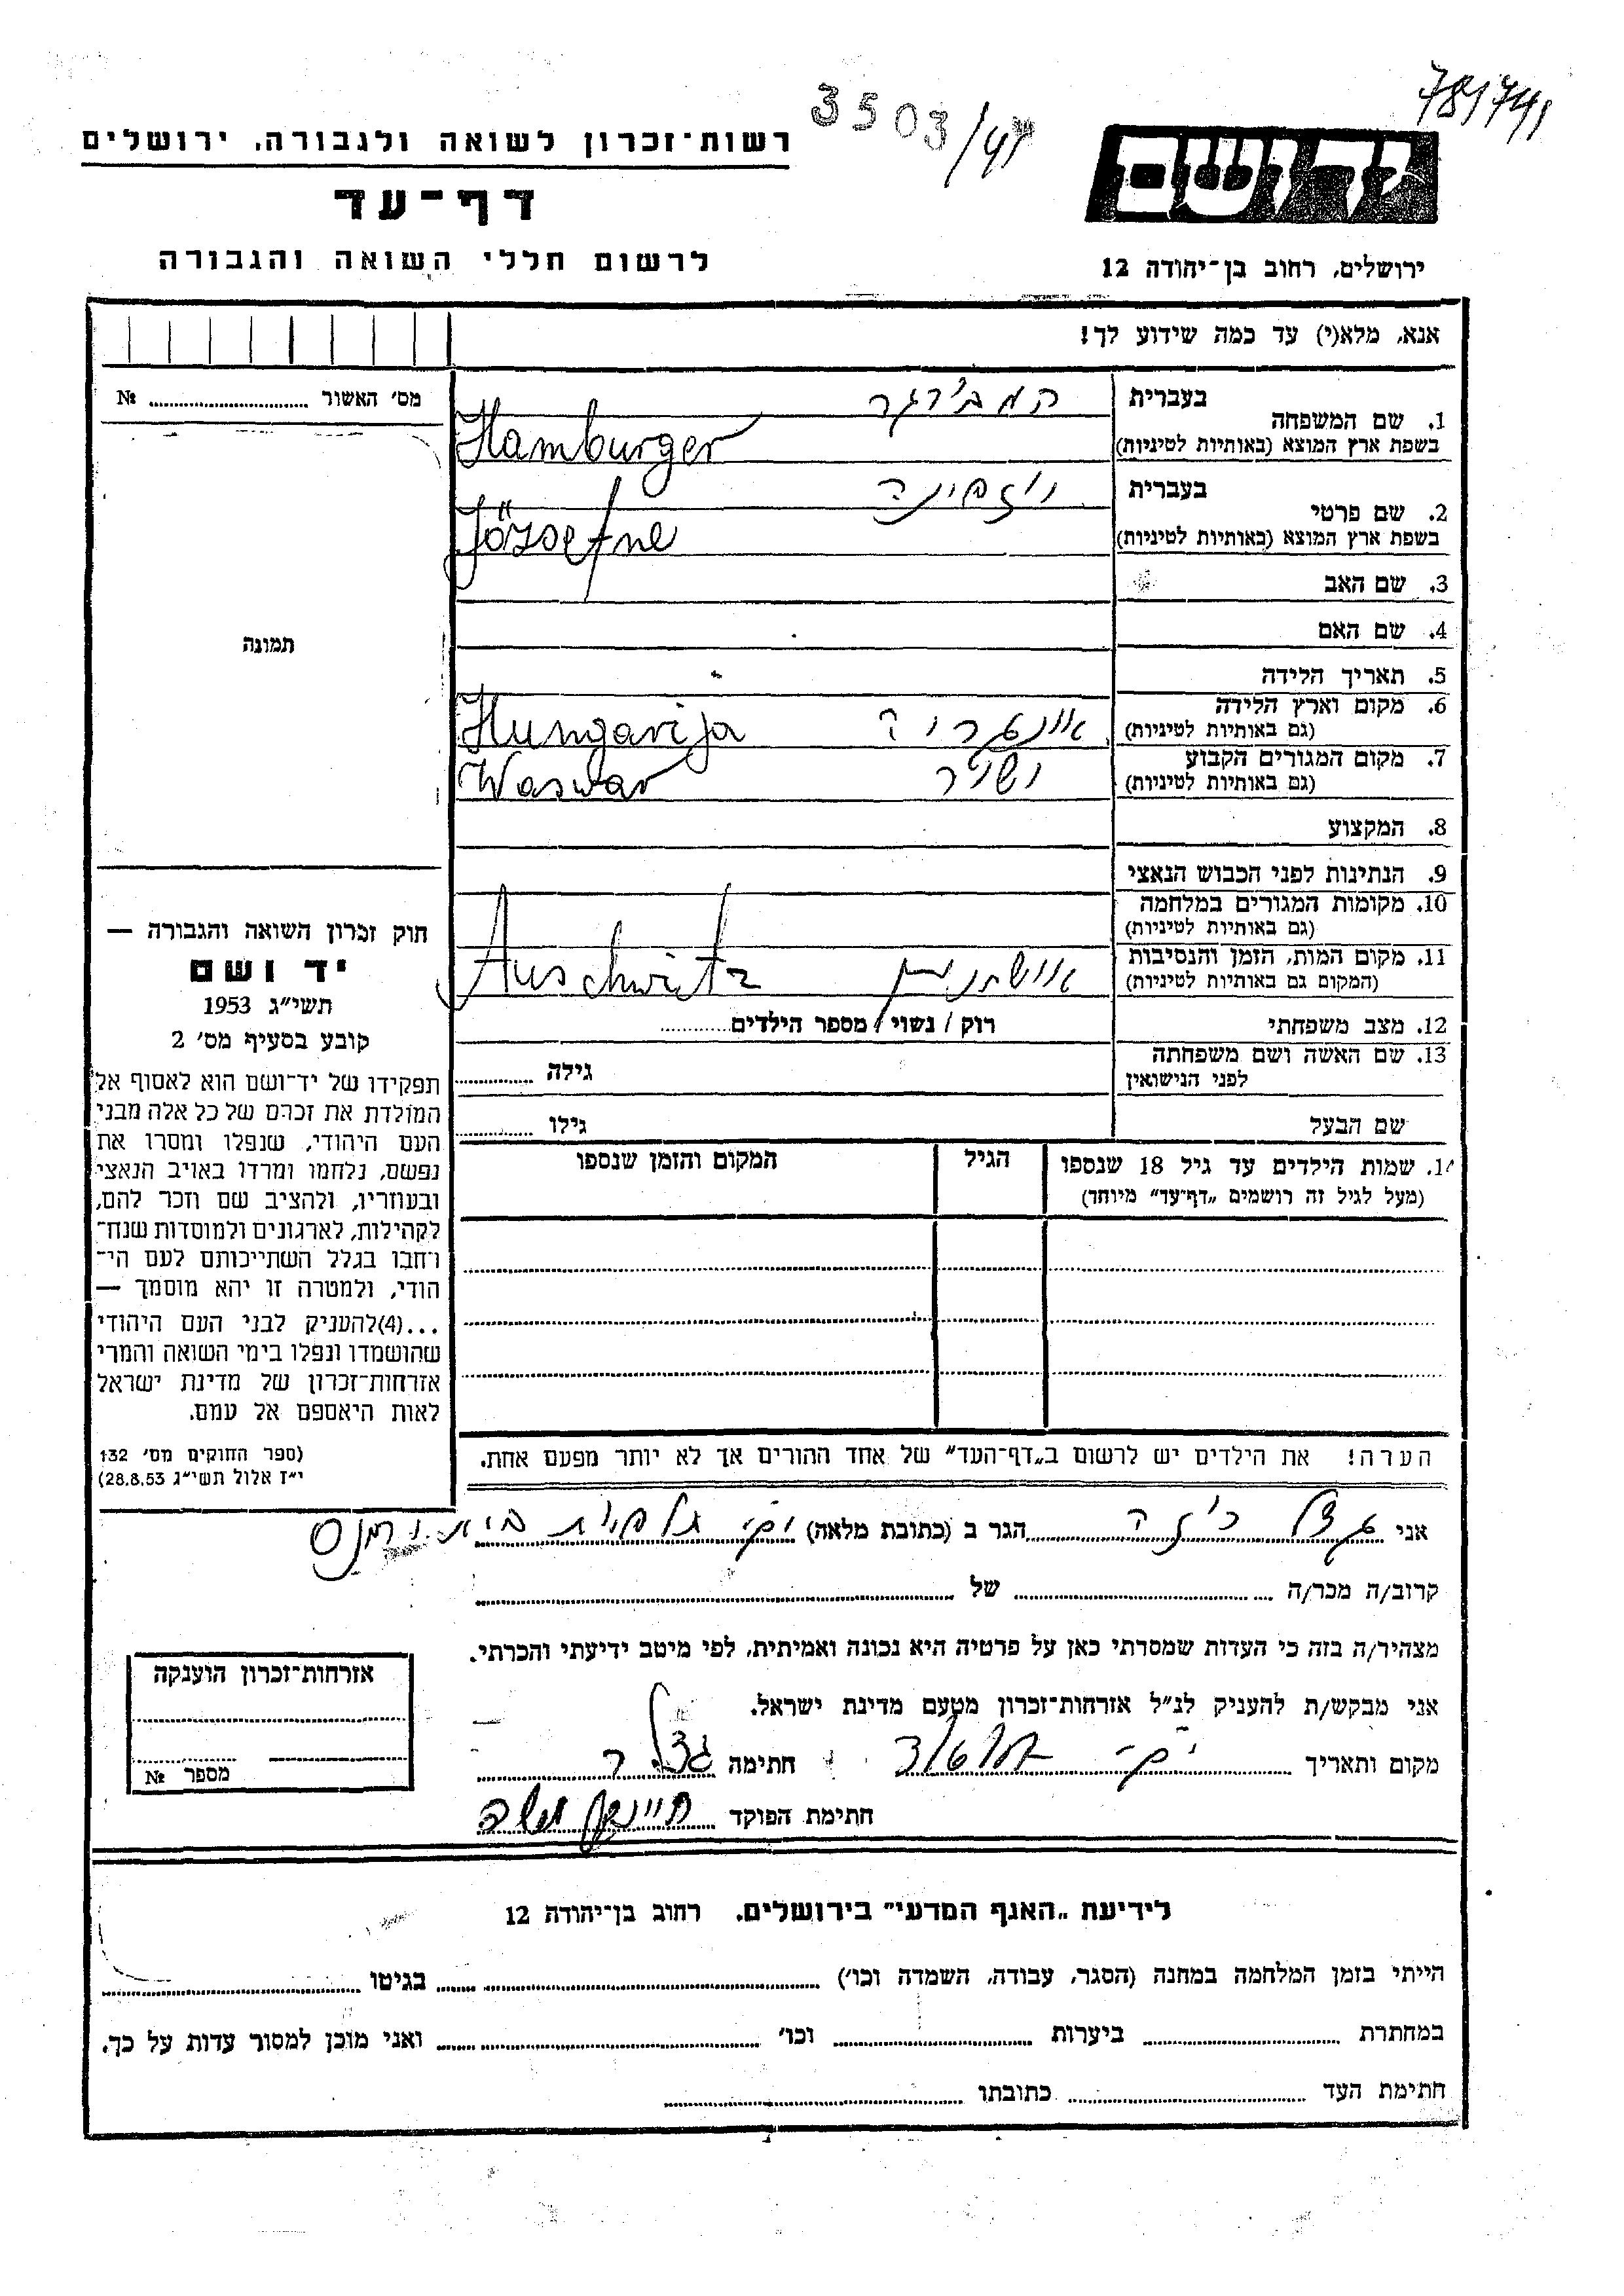 789741
3503/41
רשות־זכרון לשואה ולגבורה, ירושלים
יד ושם
דף־עד
לרשום חללי השואה והגבורה
ירושלים, רחוב בן־יהודה 12
אנא, מלא(י) עד כמה שידוע לך!
מס' האשור № ............
1. שם המשפחה בעברית המבורגר
בשפת ארץ המוצא (באותיות לטיניות) Hamburger
2. שם פרטי בעברית
בשפת ארץ המוצא (באותיות לטיניות) Józsefne
3. שם האב
4. שם האם
תמונה
5. תאריך הלידה
6. מקום וארץ הלידה
(גם באותיות לטיניות) אונגריה Hungarija
7. מקום המגורים הקבוע
(גם באותיות לטיניות) Waswar
8. המקצוע
9. הנתינות לפני הכבוש הנאצי
10. מקומות המגורים במלחמה
(גם באותיות לטיניות)
11. מקום המות, הזמן והנסיבות
(המקום גם באותיות לטיניות) Auschwitz
12. מצב משפחתי רוק / נשוי / מספר הילדים............
13. שם האשה ושם משפחתה
לפני הנישואין גילה ............
שם הבעל גילו ............
14. שמות הילדים עד גיל 18 שנספו הגיל המקום והזמן שנספו
(מעל לגיל זה רושמים „דף־עד" מיוחד)
חוק זכרון השואה והגבורה —
יד ושם
תשי"ג 1953
קובע בסעיף מס' 2
תפקידו של יד־ושם הוא לאסוף אל
המולדת את זכרם של כל אלה מבני
העם היהודי, שנפלו ומסרו את
נפשם, נלחמו ומרדו באויב הנאצי
ובעוזריו, ולהציב שם וזכר להם,
לקהילות, לארגונים ולמוסדות שנח־
רחבו בגלל השתייכותם לעם הי־
הודי, ולמטרה זו יהא מוסמך —
...(4)להעניק לבני העם היהודי
שהושמדו ונפלו בימי השואה והמרי
אזרחות־זכרון של מדינת ישראל
לאות היאספם אל עמם.
(ספר החוקים מס' 132
י"ז אלול תשי"ג 28.8.53)
הערה! את הילדים יש לרשום ב„דף־העד" של אחד ההורים אך לא יותר מפעם אחת.
אני ............ הגר ב (כתובת מלאה) ............
קרוב/ה מכר/ה ............ של ............
מצהיר/ה בזה כי העדות שמסרתי כאן על פרטיה היא נכונה ואמיתית, לפי מיטב ידיעתי והכרתי.
אני מבקש/ת להעניק לנ"ל אזרחות־זכרון מטעם מדינת ישראל.
מקום ותאריך ............ חתימה ............
חתימת הפוקד ............
אזרחות־זכרון הוענקה
מספר №
לידיעת „האגף המדעי" בירושלים, רחוב בן־יהודה 12
הייתי בזמן המלחמה במחנה (הסגר, עבודה, השמדה וכו') ............ בגיטו ............
במחתרת ............ ביערות ............ וכו' ............ ואני מוכן למסור עדות על כך.
חתימת העד ............ כתובתו ............